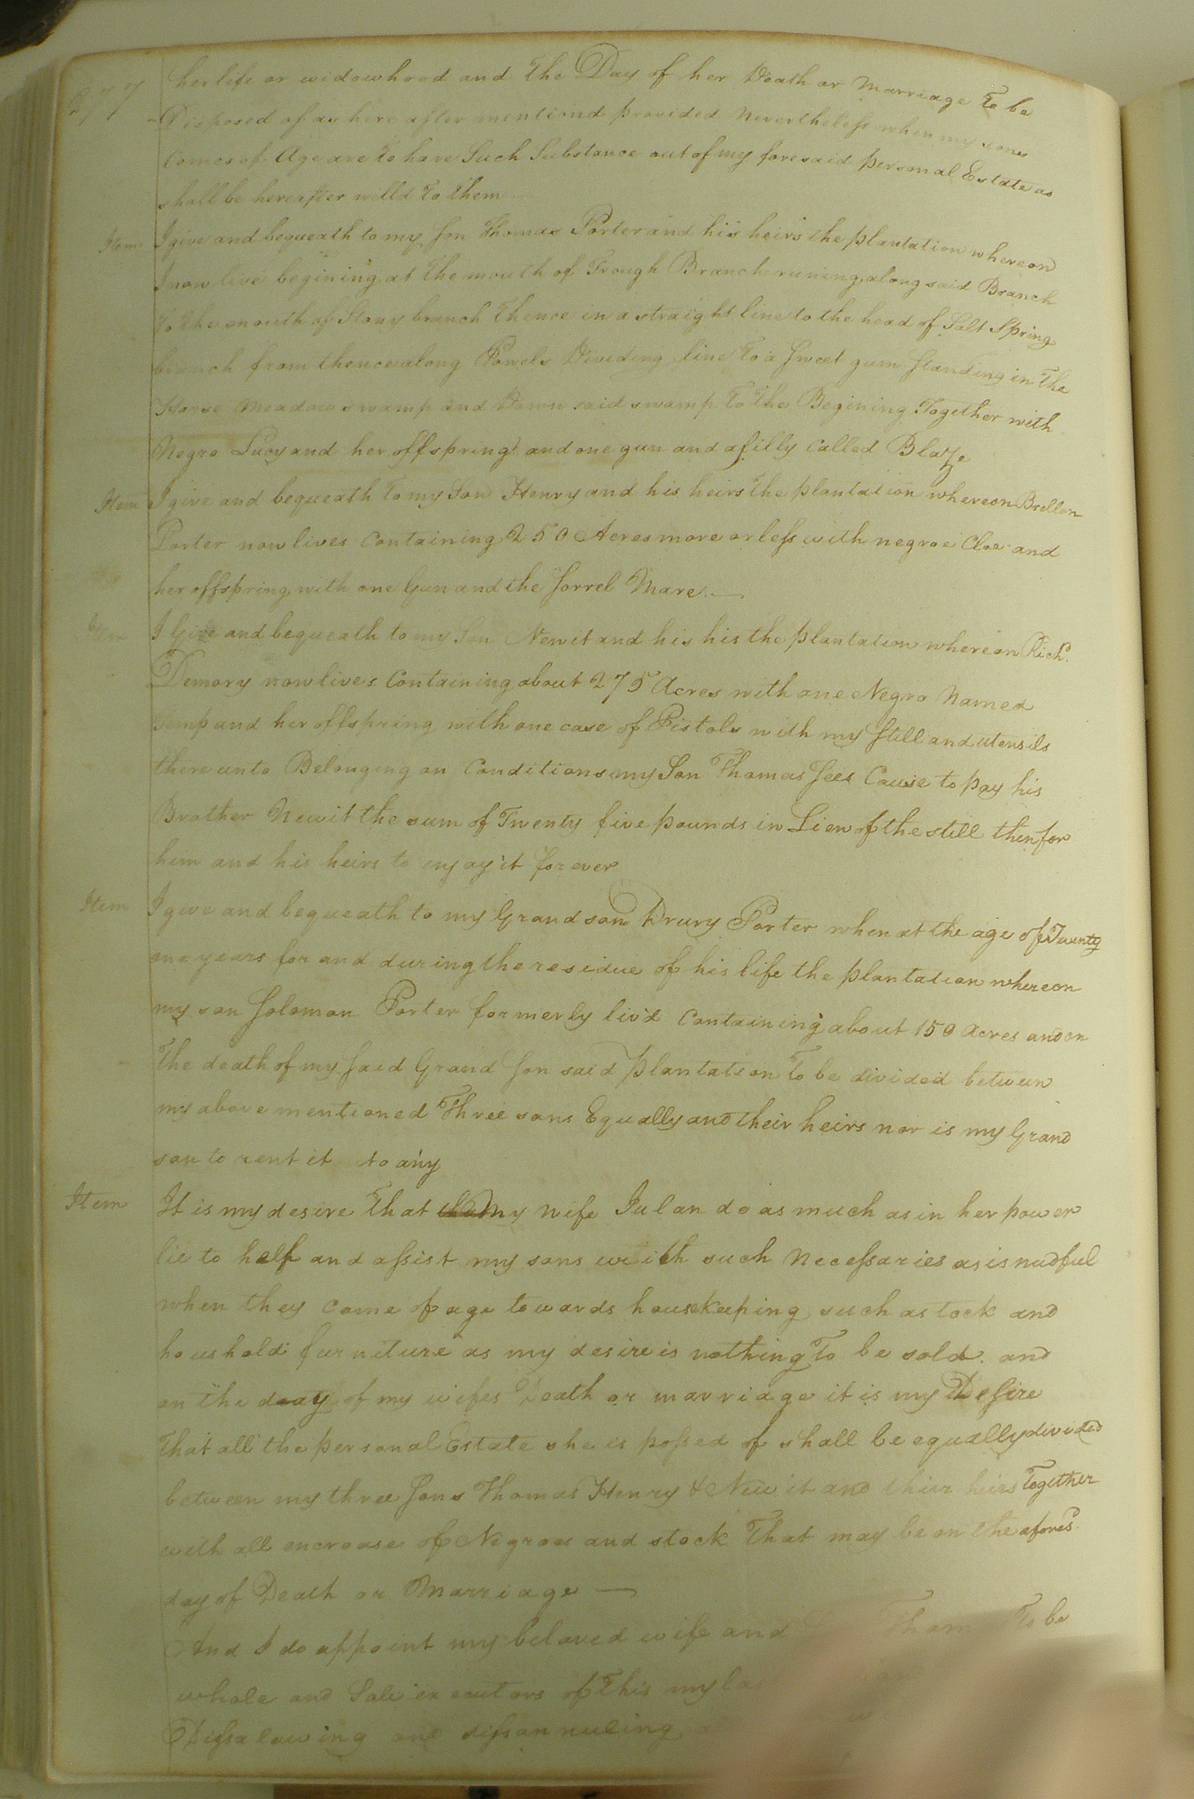 277
her life or widowhood and the Day of her Death or Marriage to be
Disposed of as here after mentiond provided Nevertheless when my sons
comes of Age are to have Such Substance out of my foresaid personal Estate as
shall be hereafter willd to them
Item I give and bequeath to my Son Thomas Porter and his heirs the plantation whereon
I now live begining at the mouth of Trough Branch runing along said Branch
to the mouth of Stony branch thence in a straight line to the head of Salt Spring
branch from thence along Powels Dividing line to a Sweet gum Standing in the
Horse meadow swamp and Down said swamp to the Begining Together with
Negro Lucy and her offspring and one gun and a filly called Blaze
Item I give and bequeath to my Son Henry and his heirs the plantation whereon
Porter now lives Containing 250 Acres more or less with negroe Cloe and
her offspring with one Gun and the Sorrel Mare —
Item I Give and bequeath to my Son Newit and his his the plantation whereon Rich.
Demory now lives Containing about 275 Acres with one Negro Named
and her offspring with one case of Pistols with my Still and utensils
there unto Belonging on Conditions my Son Thomas Sees Cause to pay his
Brother Newit the sum of Twenty five pounds in Lieu of the still then for
him and his heirs to enjoy it forever
Item I give and bequeath to my Grand son Drury Porter when at the age of Twenty
one years for and during the residue of his life the plantation whereon
my son Solomon Porter formerly livd Containing about 150 Acres and on
the death of my Said Grand Son said plantation to be divided between
my above mentioned Three sons Equally and their heirs nor is my Grand
son to rent it to any
Item It is my desire That my wife Julan do as much as in her power
lie to help and assist my sons with such Necessaries as is nedful
when they come of age towards housekeeping such as tock and
houshold furniture as my desire is nothing To be sold. and
on the day of my wifes Death or marriage it is my Desire
That all the personal Estate she is possed of shall be equally divided
between my three Sons Thomas Henry & Newit and their heirs Together
with all encrease of Negroes and stock That may be on the afores.d
day of Death or Marriage —
And I do appoint my beloved wife and Thom To be
whole and Sole executors of this my
Dissalowing and dissannuling